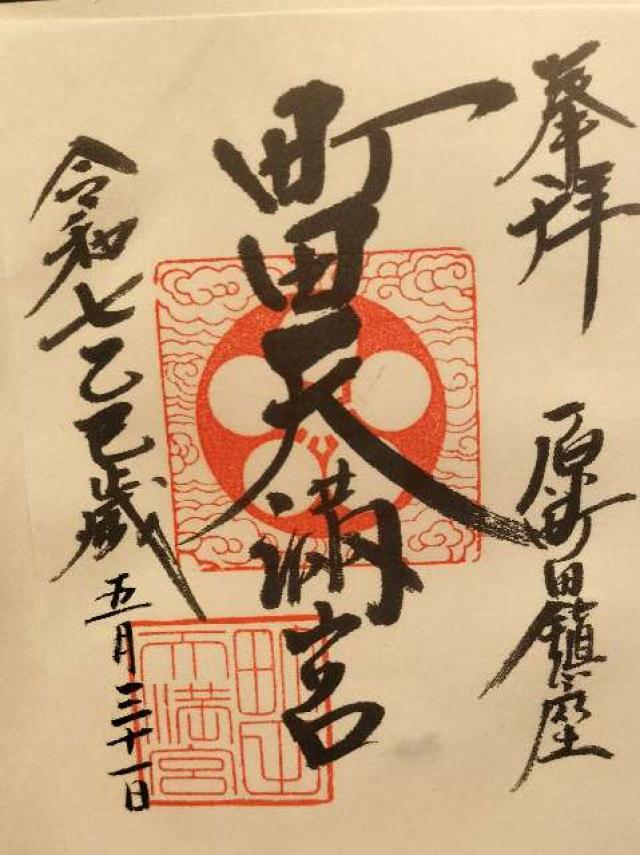 奉拝
原町田鎮座
町田天満宮
令和七乙巳歳
五月三十一日
町田
天満宮